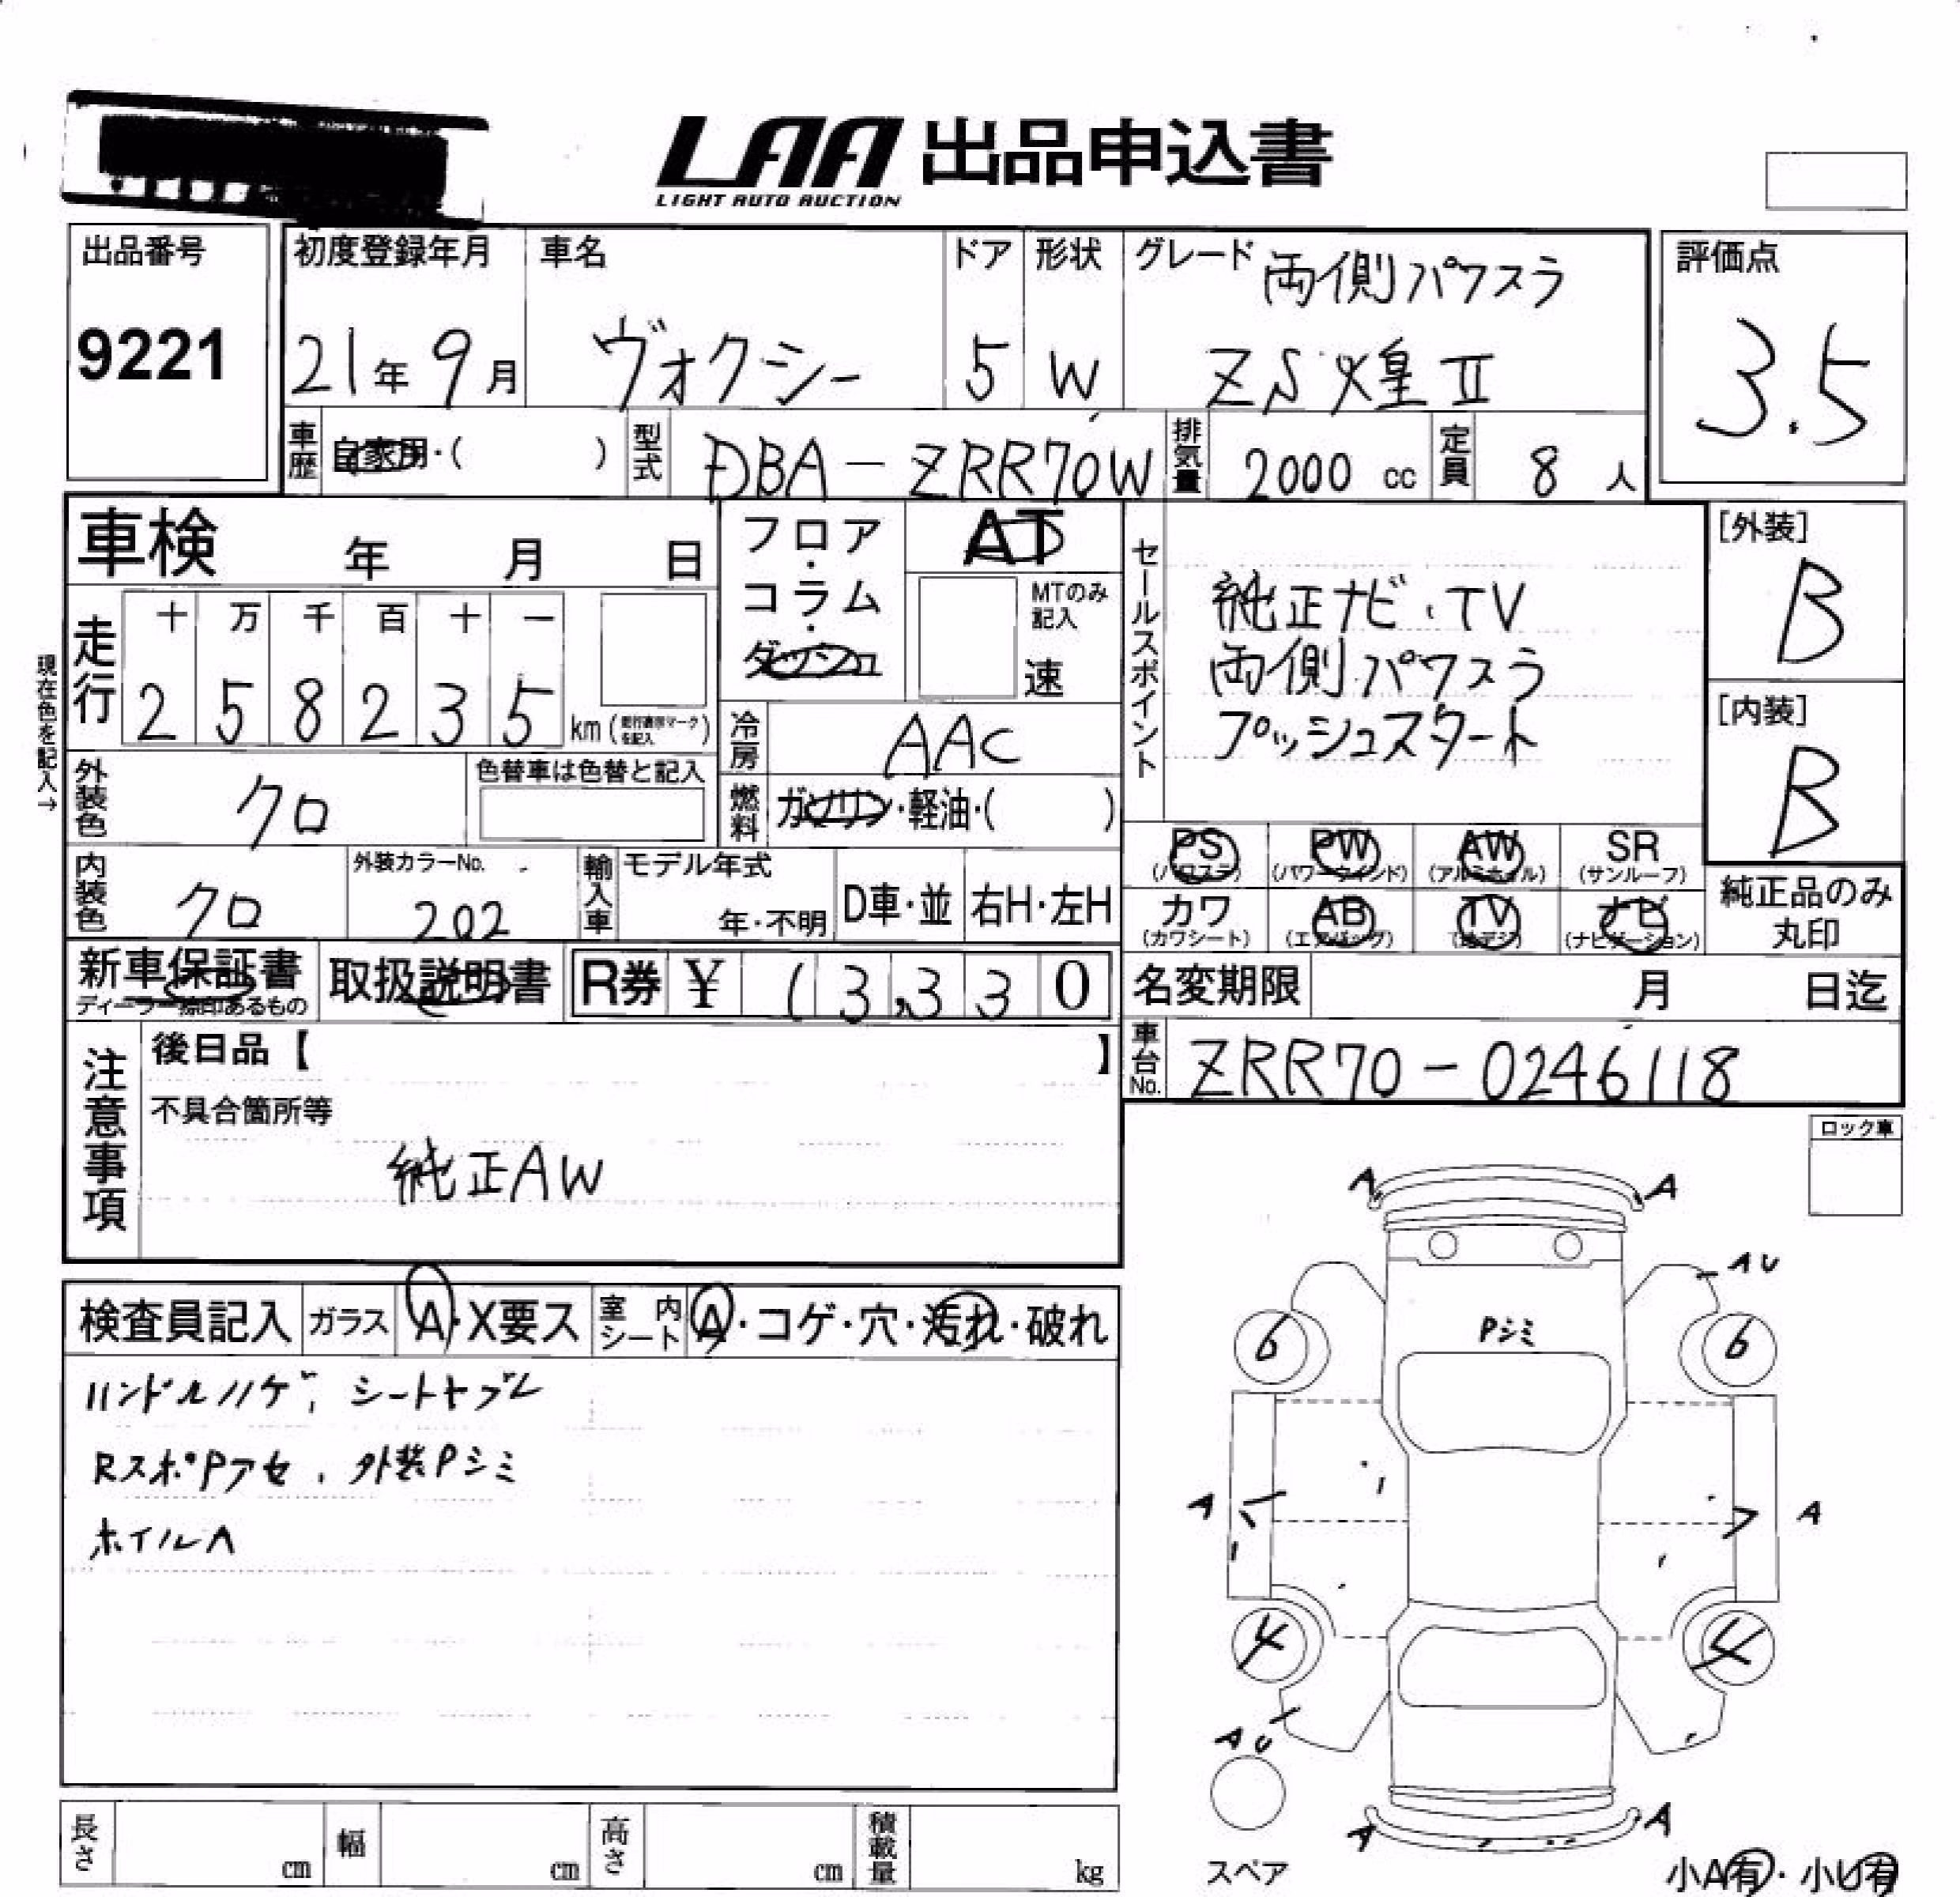 LAA 出品申込書
LIGHT AUTO AUCTION
出品番号
9221
初度登録年月
21年 9月
車名
ヴォクシー
ドア
5
形状
W
グレード 両側パワスラ
ZS 煌 Ⅱ
評価点
3.5
車歴
自家用・( )
型式
DBA-ZRR70W
排気量
2000 cc
定員
8 人
車検 年 月 日
フロア・コラム・ダッシュ
AT
MTのみ記入
速
現在色を記入→
走行
十 万 千 百 十 一
2 5 8 2 3 5
km (走行距離マークを記入)
冷房
AAC
セールスポイント
純正ナビ・TV
両側パワスラ
プッシュスタート
[外装]
B
[内装]
B
外装色
クロ
色替車は色替と記入
燃料
ガソリン・軽油・( )
内装色
クロ
外装カラーNo.
202
輸入車
モデル年式
年・不明
D車・並
右H・左H
PS (パワステ)
PW (パワーウィンド)
AW (アルミホイル)
SR (サンルーフ)
カワ (カワシート)
AB (エアバッグ)
TV (地デジ)
ナビ (ナビゲーション)
純正品のみ
丸印
新車保証書
ディーラー捺印あるもの
取扱説明書
R券 ¥ 13,330
名変期限 月 日迄
車台No.
ZRR70-0246118
注意事項
後日品【 】
不具合箇所等
純正AW
ロック車
検査員記入
ガラス
A・X要ス
室内シート
A・コゲ・穴・汚れ・破れ
ハンドルハゲ, シートヤブレ
RスポPアセ, 外装Pシミ
ホイルA
A A
A U
Pシミ
6 6
A A
4 4
A U
A A
スペア
長さ cm
幅 cm
高さ cm
積載量 kg
小A有・小U有